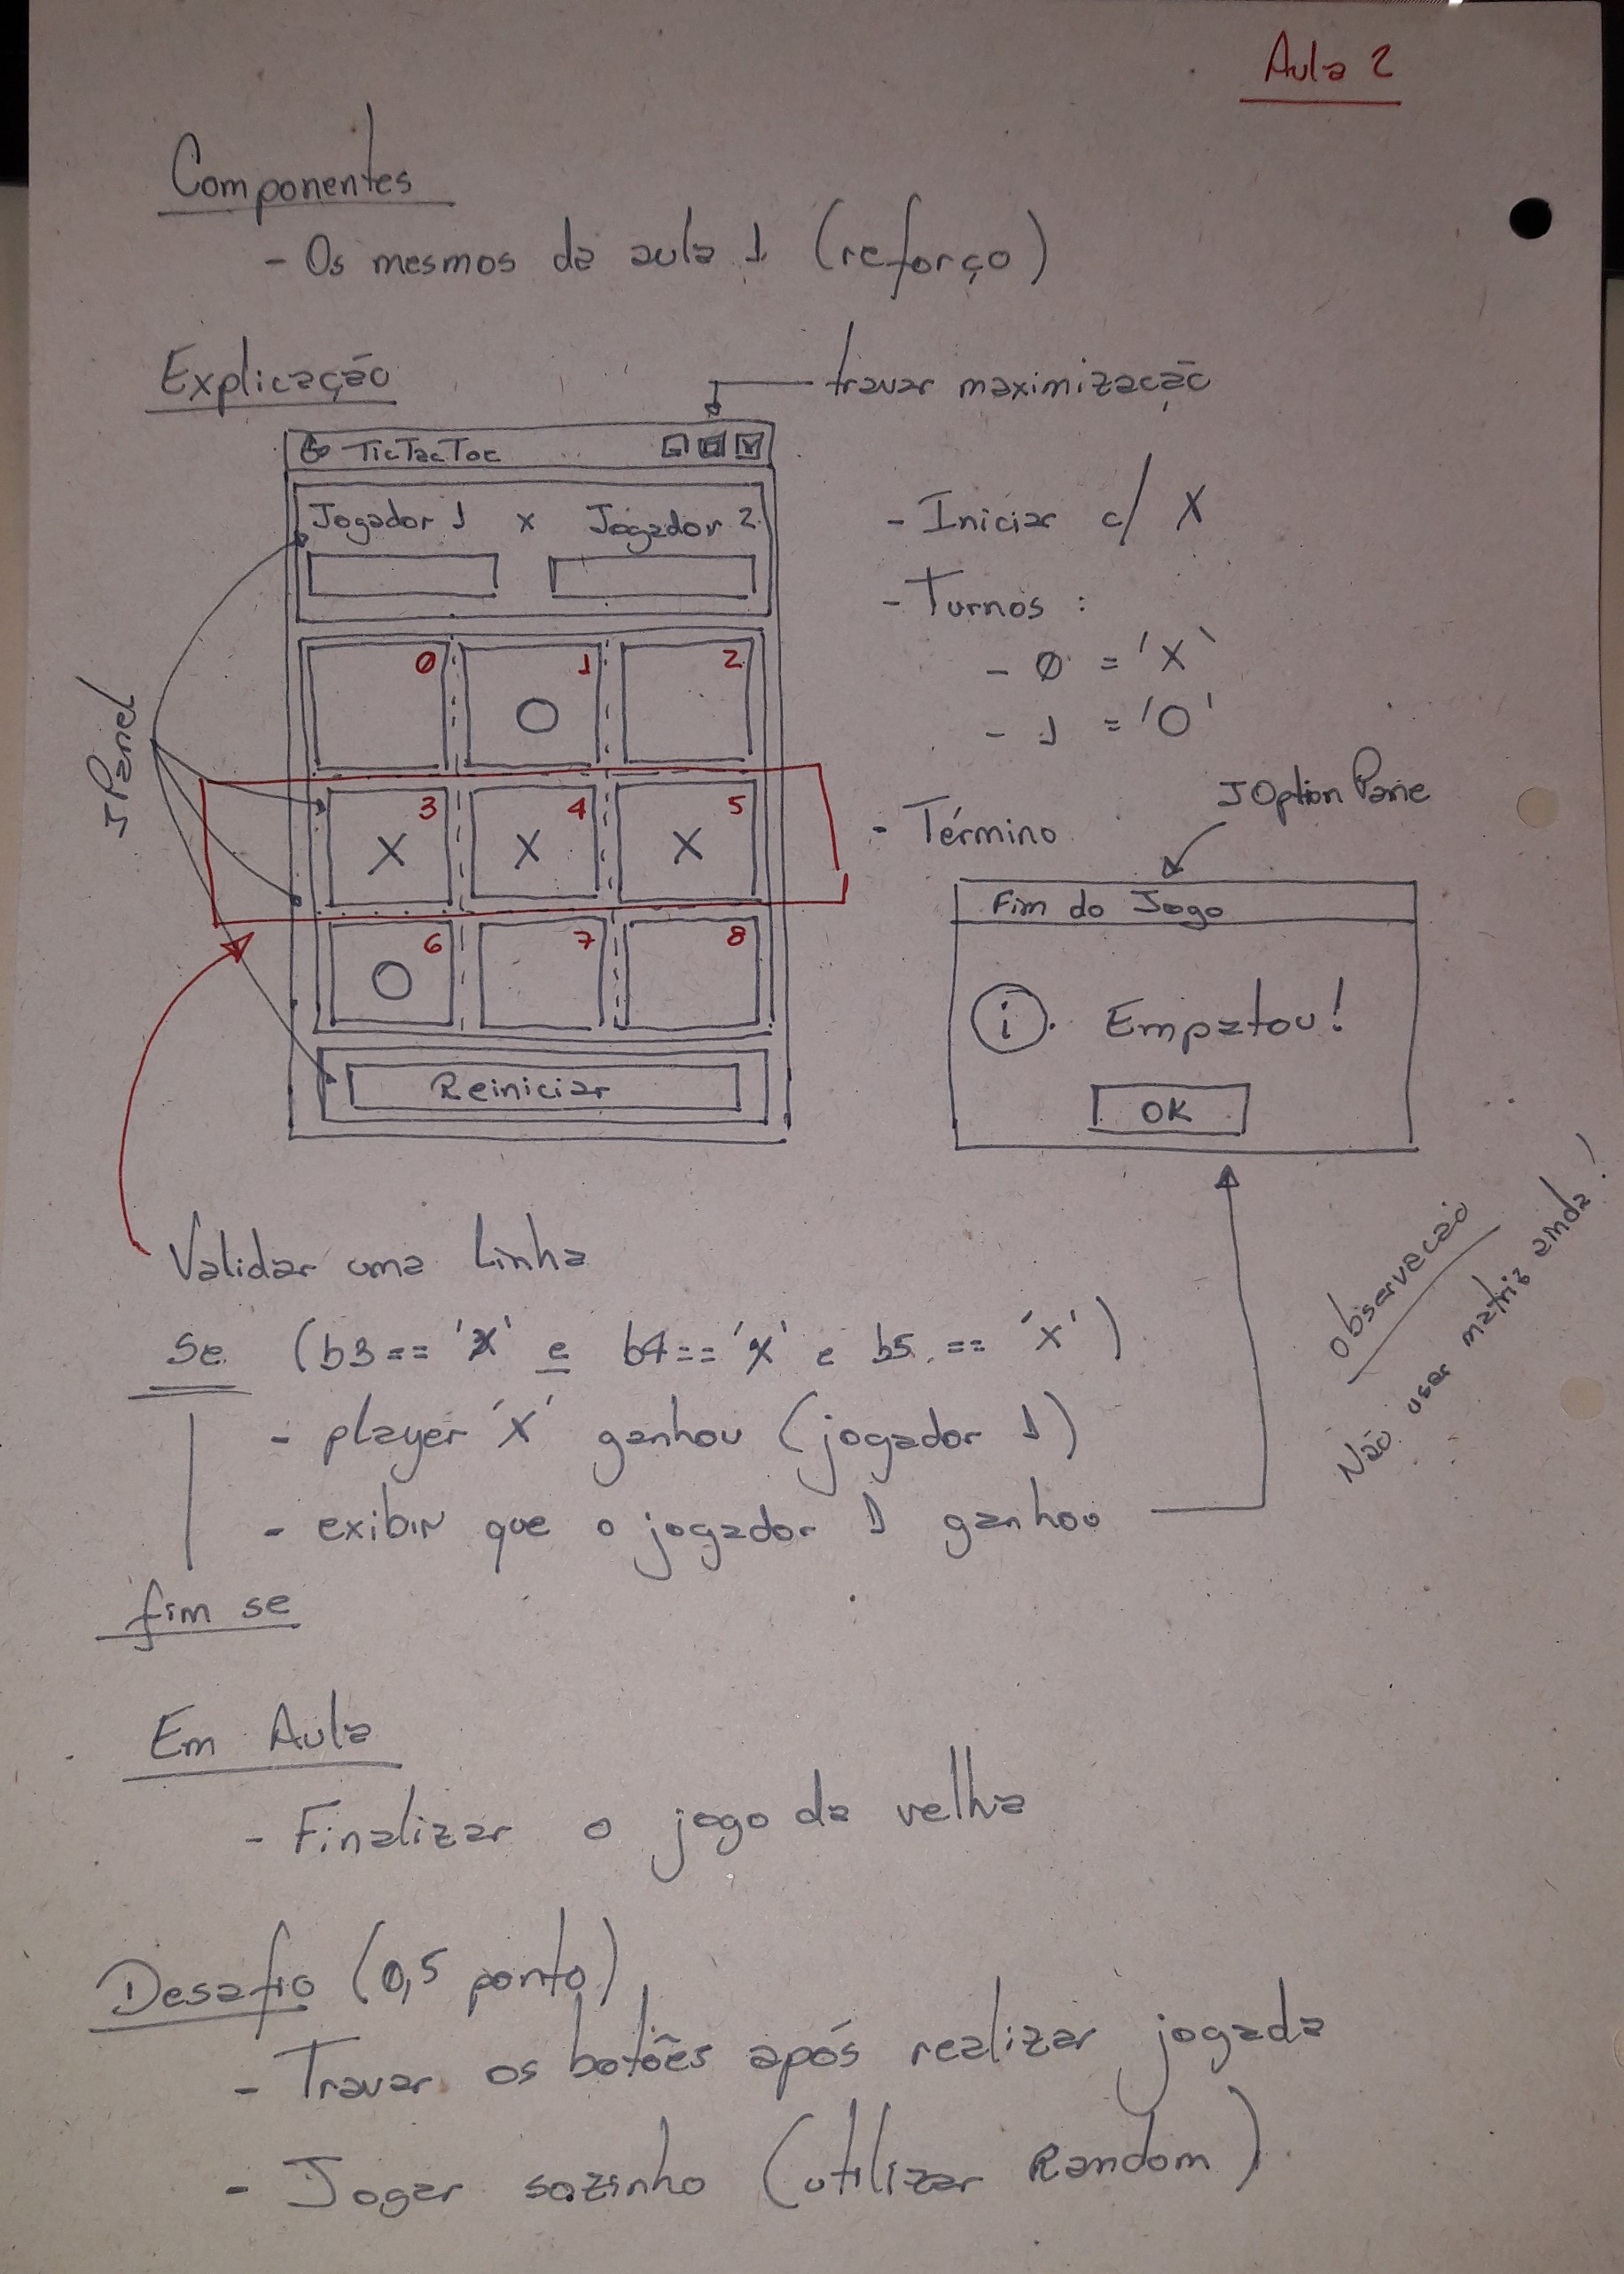 Aula 2
Componentes
- Os mesmos da aula 1 (reforço)
Explicação
travar maximização
TicTacToe
Jogador 1 x Jogador 2
- Iniciar c/ X
- Turnos :
- 0 = 'X'
- 1 = 'O'
JPanel
0 1 2
O
3 4 5
X X X
6 7 8
O
Reiniciar
- Término
JOptionPane
Fim do Jogo
i Empatou!
OK
Observação
Não usar matriz ainda!
Validar uma linha
se (b3 == 'X' e b4 == 'X' e b5 == 'X')
- player 'X' ganhou (jogador 1)
- exibir que o jogador 1 ganhou
fim se
Em Aula
- Finalizar o jogo da velha
Desafio (0,5 ponto)
- Travar os botões após realizar jogada
- Jogar sozinho (utilizar Random)